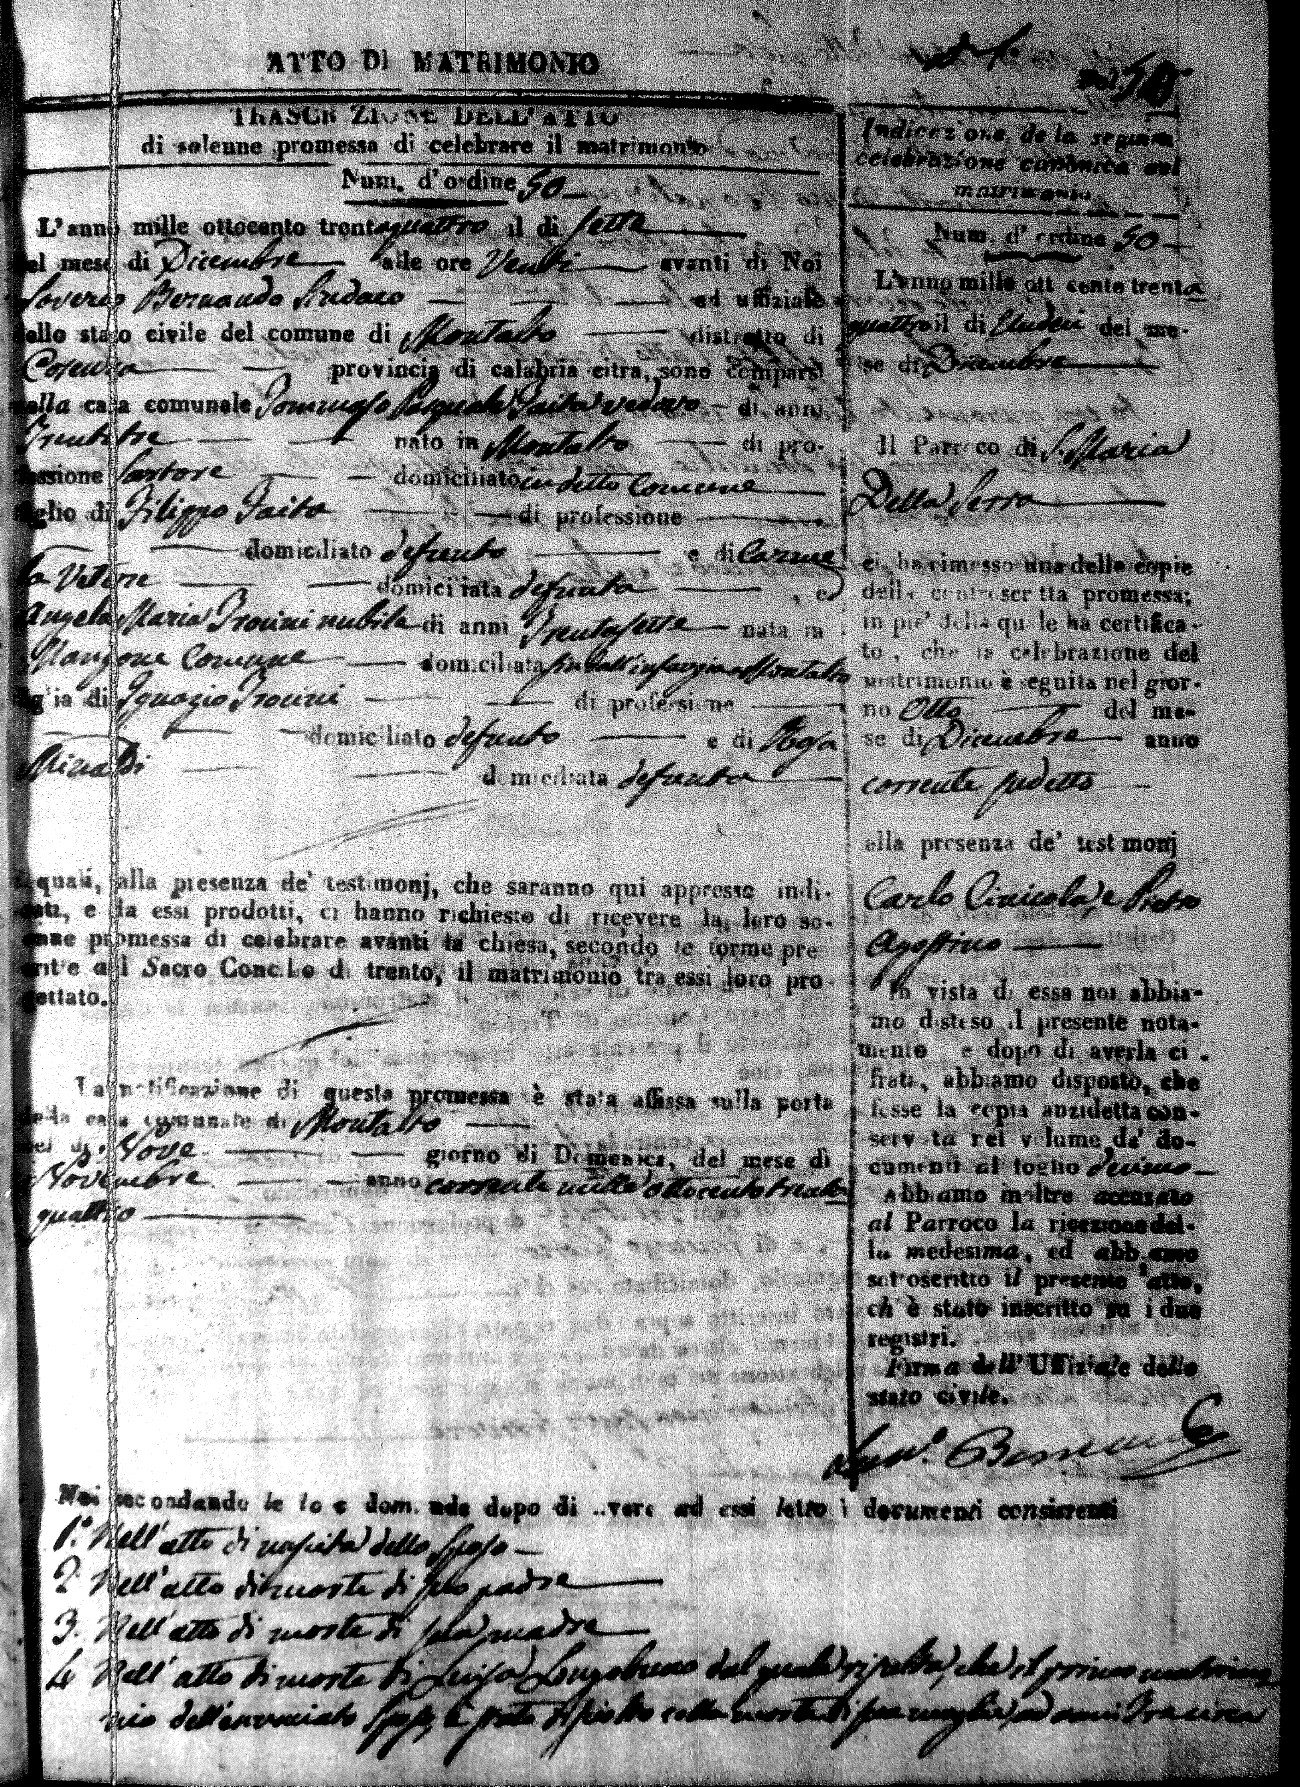 ATTO DI MATRIMONIO
50
TRASCRIZIONE DELL'ATTO
di solenne promessa di celebrare il matrimonio
Num. d'ordine 50
L'anno mille ottocento trentaquattro il di Sette
del mese di Dicembre alle ore Venti avanti di Noi
Saverio Bernardo Sindaco ed uffiziale
dello stato civile del comune di Montalto distretto di
Cosenza provincia di calabria citra, sono comparsi
nella casa comunale Tommaso Pasquale Gaito vedovo di anni
Trentatre nato in Montalto di pro-
fessione Sartore domiciliato in detto Comune
figlio di Filippo Gaito di professione
domiciliato defunto e di Carme
la Vetere domiciliata defunta , e
Angela Maria Troini nubile di anni Trentasette nata in
Mangone Comune domiciliata sin dall'infanzia a Montalto
figlia di Ignazio Troini di professione
domiciliato defunto e di Rosa
Rinaldi domiciliata defunta
i quali, alla presenza de' testimonj, che saranno qui appresso indi-
cati, e da essi prodotti, ci hanno richiesto di ricevere la loro so-
lenne promessa di celebrare avanti la chiesa, secondo le forme pre
scritte dal Sacro Concilio di trento, il matrimonio tra essi loro pro-
gettato.
La notificazione di questa promessa è stata affissa sulla porta
della casa comunale di Montalto
nel di Nove giorno di Domenica, del mese di
Novembre anno corrente mille ottocento trenta
quattro
Indicazione de la seguita
celebrazione canonica del
matrimonio
Num. d'ordine 50
L'anno mille ottocento trenta
quattro il di Undeci del me-
se di Dicembre
Il Parroco di S. Maria
Della Serra
ci ha rimesso una delle copie
della controscritta promessa;
in piè della quale ha certifica-
to, che la celebrazione del
matrimonio è seguita nel gior-
no Otto del me-
se di Dicembre anno
corrente sudetto
alla presenza de' testimonj
Carlo Cinicola, e Pietro
Agostino
In vista di essa noi abbia-
mo disteso il presente nota-
mento e dopo di averla ci-
frata, abbiamo disposto, che
fosse la copia anzidetta con-
servata nel volume de' do-
cumenti al foglio decimo
Abbiamo inoltre accusato
al Parroco la ricezione del-
la medesima, ed abbiamo
sottoscritto il presente atto,
ch'è stato inscritto su i due
registri.
Firma dell'Uffiziale dello
stato civile.
Sav.o Bernardo
Noi secondando le loro domande dopo di avere ad essi letto i documenti consistenti
1.° Nell'atto di nascita dello Sposo
2. Nell'atto di morte di suo padre
3. Nell'atto di morte di sua madre
4. Nell'atto di morte di Luisa Longobucco dal quale risulta, che il primo matrimo
nio dell'enunciato Sposo è stato disciolto colla morte di sua moglie, ad anni Tre circa